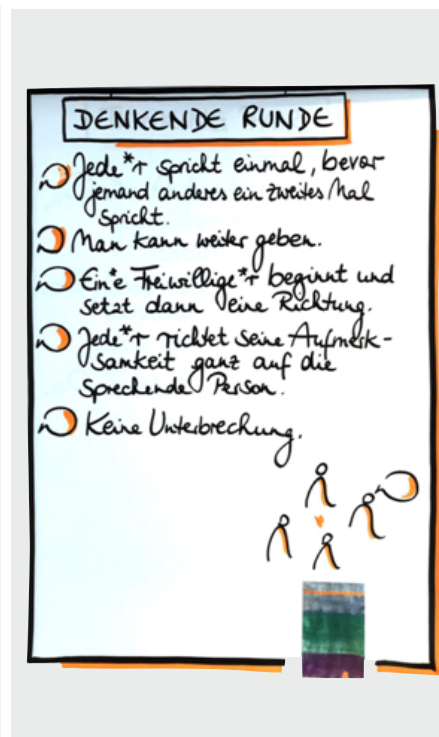 DENKENDE RUNDE
Jede*r spricht einmal, bevor
jemand anderes ein zweites Mal
spricht.
Man kann weiter geben.
Ein*e Freiwillige*r beginnt und
setzt dann eine Richtung.
Jede*r richtet seine Aufmerk-
samkeit ganz auf die
sprechende Person.
Keine Unterbrechung.